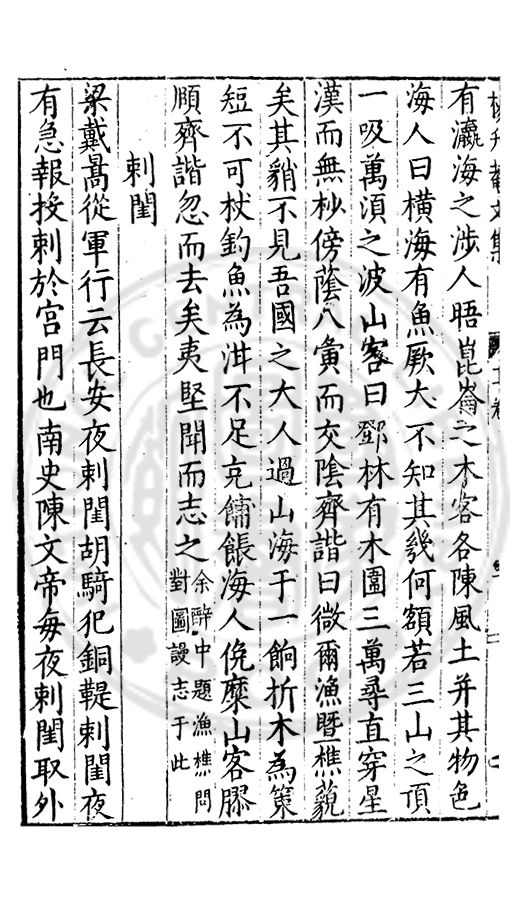 有瀛海之涉人晤崑崙之木客各陳風土并其物色
海人曰橫海有魚厥大不知其幾何額若三山之頂
一吸萬頃之波山客曰鄧林有木圍三萬尋直穿星
漢而無杪傍蔭八夤而交陰齊諧曰微爾漁暨樵藐
矣其騧不見吾國之大人過山海于一餉折木為策
短不可杖釣魚為泔不足充餔餦海人俛麋山客膠
頤齊諧忽而去矣夷堅聞而志之余醉中題漁樵問
對圖謾志于此
刺閨
梁戴暠從軍行云長安夜刺閨胡騎犯銅鞮刺閨夜
有急報投刺於宮門也南史陳文帝每夜刺閨取外